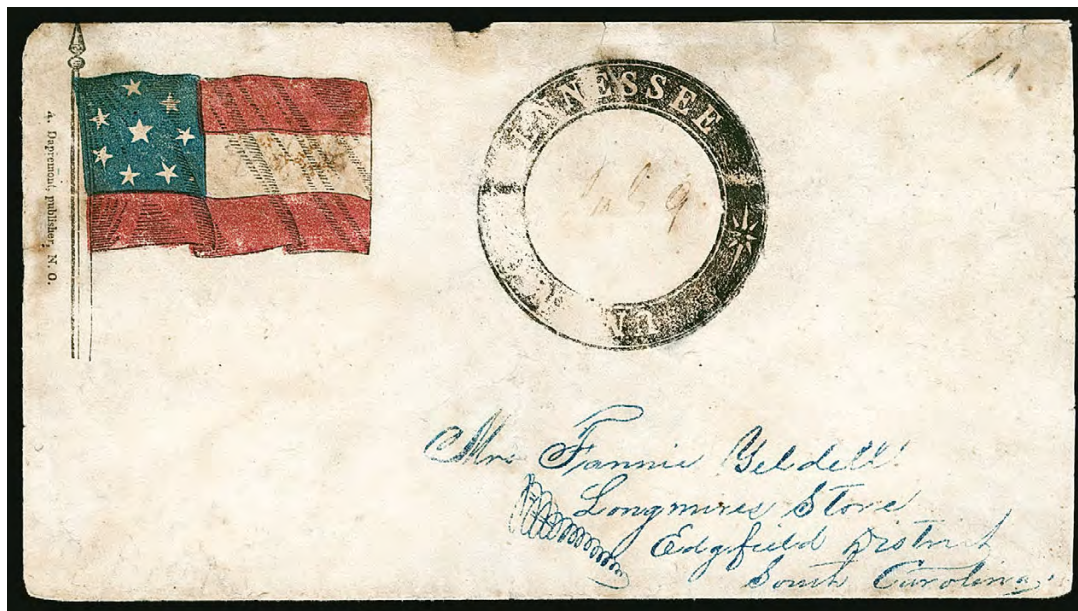 A. Depremont, publisher, N. O.
ENNESSEE
UN
Mrs Fannie Geldell
Longmires Store
Edgfield District
South Carolina